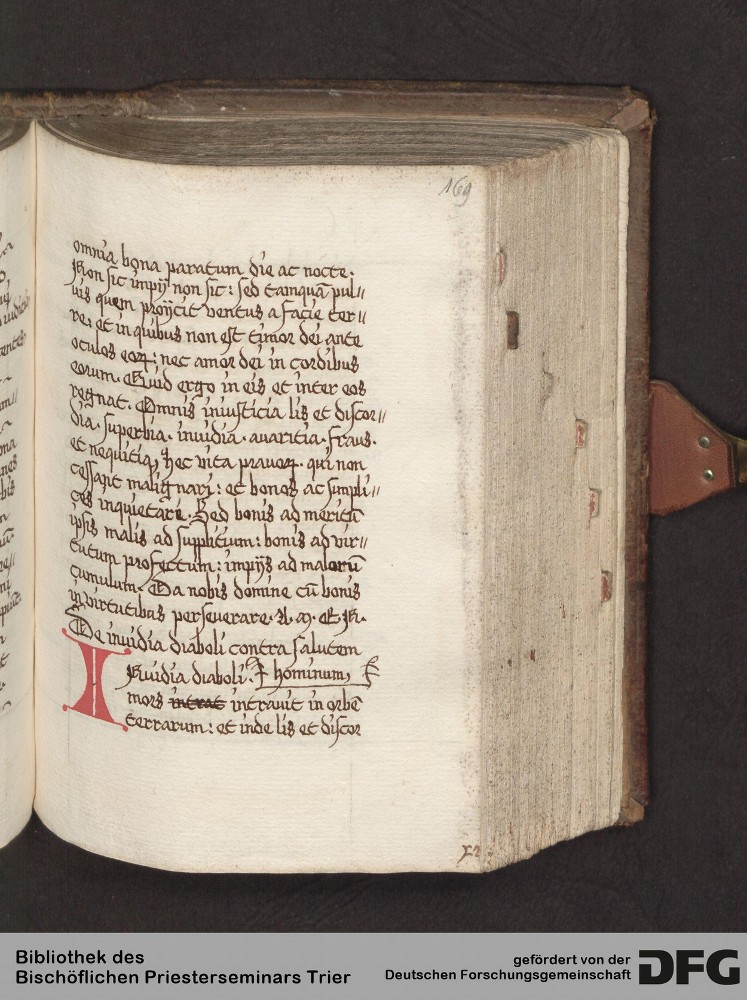 169
omnia bona paratum die ac nocte.
Non sic impij non sic: sed tamquā pul//
uis quem proijcit ventus a facie ter//
re: et in quibus non est timor dei ante
oculos eoꝝ: nec amor dei in cordibus
eorum. Quid ergo in eis et inter eos
regnat. Omnis iniusticia lis et discor//
dia. superbia. inuidia. auaritia. fraus.
et nequitia, hec vita prauoꝝ. qui non
cessant malignari: et bonos ac simpli//
ces inquietare. Sed bonis ad meritū
ipsis malis ad supplitium: bonis ad vir//
tutum profectum: impijs ad malorū
cumulum. Da nobis domine cū bonis
in virtutibus perseuerare. A. M. E. N.
De inuidia diaboli contra salutem
INuidia diaboli. hominum,
mors intrat intrauit in orbē
terrarum: et inde lis et discor
Bibliothek des
Bischöflichen Priesterseminars Trier
gefördert von der
Deutschen Forschungsgemeinschaft DFG